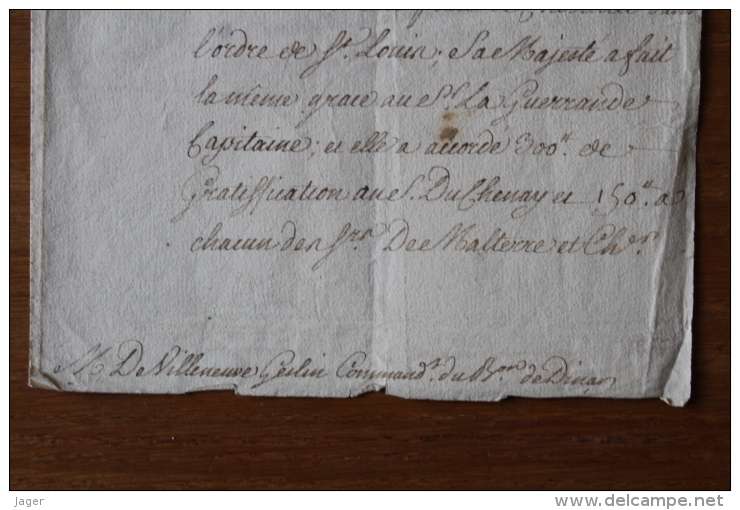 l'ordre de St. Louis; Sa Majesté a fait
la même grace au Sr. La Guerrande
Capitaine; et elle a accordé 300tt. de
Gratiffication au S. Du Chenay et 150tt. a
chacun des Srs. De Malterre et Chrs.
M De Villeneuve Geslin Commandt. du Bon. de Dinan
Jager
www.delcampe.net